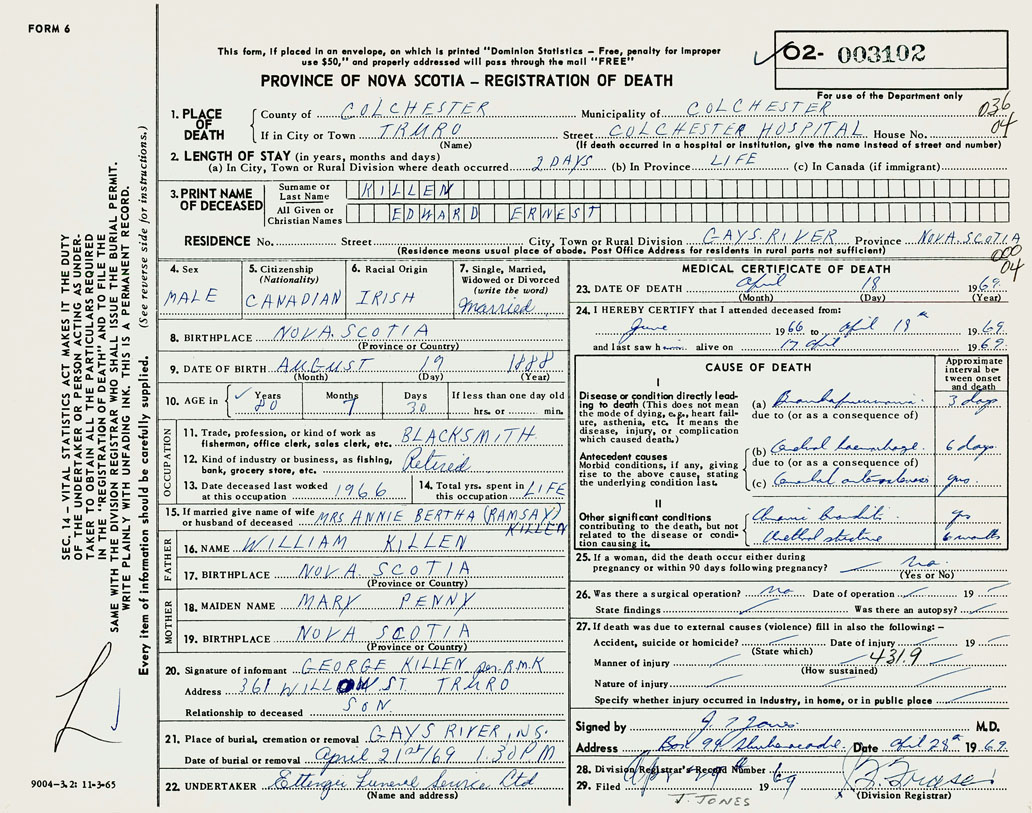 FORM 6
This form, if placed in an envelope, on which is printed "Dominion Statistics – Free, penalty for improper
use $50," and properly addressed will pass through the mail "FREE"
PROVINCE OF NOVA SCOTIA – REGISTRATION OF DEATH
02- 003102
For use of the Department only
036
04
1. PLACE OF DEATH
County of COLCHESTER Municipality of COLCHESTER
If in City or Town TRURO Street COLCHESTER HOSPITAL House No.
(Name) (If death occurred in a hospital or institution, give the name instead of street and number)
2. LENGTH OF STAY (in years, months and days)
(a) In City, Town or Rural Division where death occurred 2 DAYS (b) In Province LIFE (c) In Canada (if immigrant)
3. PRINT NAME OF DECEASED
Surname or Last Name KILLEN
All Given or Christian Names EDWARD ERNEST
RESIDENCE No. Street City, Town or Rural Division GAYS RIVER Province NOVA SCOTIA
(Residence means usual place of abode. Post Office Address for residents in rural parts not sufficient)
000
04
4. Sex MALE
5. Citizenship (Nationality) CANADIAN
6. Racial Origin IRISH
7. Single, Married, Widowed or Divorced (write the word) Married
8. BIRTHPLACE NOVA SCOTIA
(Province or Country)
9. DATE OF BIRTH AUGUST 19 1888
(Month) (Day) (Year)
10. AGE in Years Months Days If less than one day old
80 7 30 hrs. or min.
OCCUPATION
11. Trade, profession, or kind of work as fisherman, office clerk, sales clerk, etc. BLACKSMITH
12. Kind of industry or business, as fishing, bank, grocery store, etc. Retired
13. Date deceased last worked at this occupation 1966
14. Total yrs. spent in this occupation LIFE
15. If married give name of wife or husband of deceased MRS ANNIE BERTHA (RAMSAY) KILLEN
FATHER
16. NAME WILLIAM KILLEN
17. BIRTHPLACE NOVA SCOTIA
(Province or Country)
MOTHER
18. MAIDEN NAME MARY PENNY
19. BIRTHPLACE NOVA SCOTIA
(Province or Country)
20. Signature of informant GEORGE KILLEN per R.M.K
Address 361 WILLOW ST. TRURO
Relationship to deceased SON
21. Place of burial, cremation or removal GAYS RIVER, NS.
Date of burial or removal April 21st/69 1.30 PM
22. UNDERTAKER Ettinger Funeral Service Ltd
(Name and address)
MEDICAL CERTIFICATE OF DEATH
23. DATE OF DEATH April 18 1969
(Month) (Day) (Year)
24. I HEREBY CERTIFY that I attended deceased from:
June 1966 to April 18th 1969
and last saw him alive on 17 April 1969
CAUSE OF DEATH
Approximate interval between onset and death
I
Disease or condition directly leading to death (This does not mean the mode of dying, e.g., heart failure, asthenia, etc. It means the disease, injury, or complication which caused death.)
(a) Bronchopneumonia 3 days
due to (or as a consequence of)
Antecedent causes
Morbid conditions, if any, giving rise to the above cause, stating the underlying condition last.
(b) Cerebral haemorrhage 6 days
due to (or as a consequence of)
(c) Cerebral arteriosclerosis yrs.
II
Other significant conditions contributing to the death, but not related to the disease or condition causing it.
Chronic Bronchitis yrs
Urethral stricture 6 months
25. If a woman, did the death occur either during pregnancy or within 90 days following pregnancy? no
(Yes or No)
26. Was there a surgical operation? no Date of operation 19
State findings Was there an autopsy?
27. If death was due to external causes (violence) fill in also the following: –
Accident, suicide or homicide? Date of injury 19
(State which)
Manner of injury 431.9
(How sustained)
Nature of injury
Specify whether injury occurred in industry, in home, or in public place
Signed by J. Jones M.D.
Address Box 99 Shubenacadie Date April 28th 1969
28. Division Registrar's Record Number
29. Filed 1969
(Division Registrar)
J. JONES
SEC. 14 – VITAL STATISTICS ACT MAKES IT THE DUTY
OF THE UNDERTAKER OR PERSON ACTING AS UNDER-
TAKER TO OBTAIN ALL THE PARTICULARS REQUIRED
IN THE "REGISTRATION OF DEATH" AND TO FILE THE
SAME WITH THE DIVISION REGISTRAR WHO SHALL ISSUE THE BURIAL PERMIT.
WRITE PLAINLY WITH UNFADING INK. THIS IS A PERMANENT RECORD.
Every item of information should be carefully supplied. (See reverse side for instructions.)
9004-3.2: 11-3-65